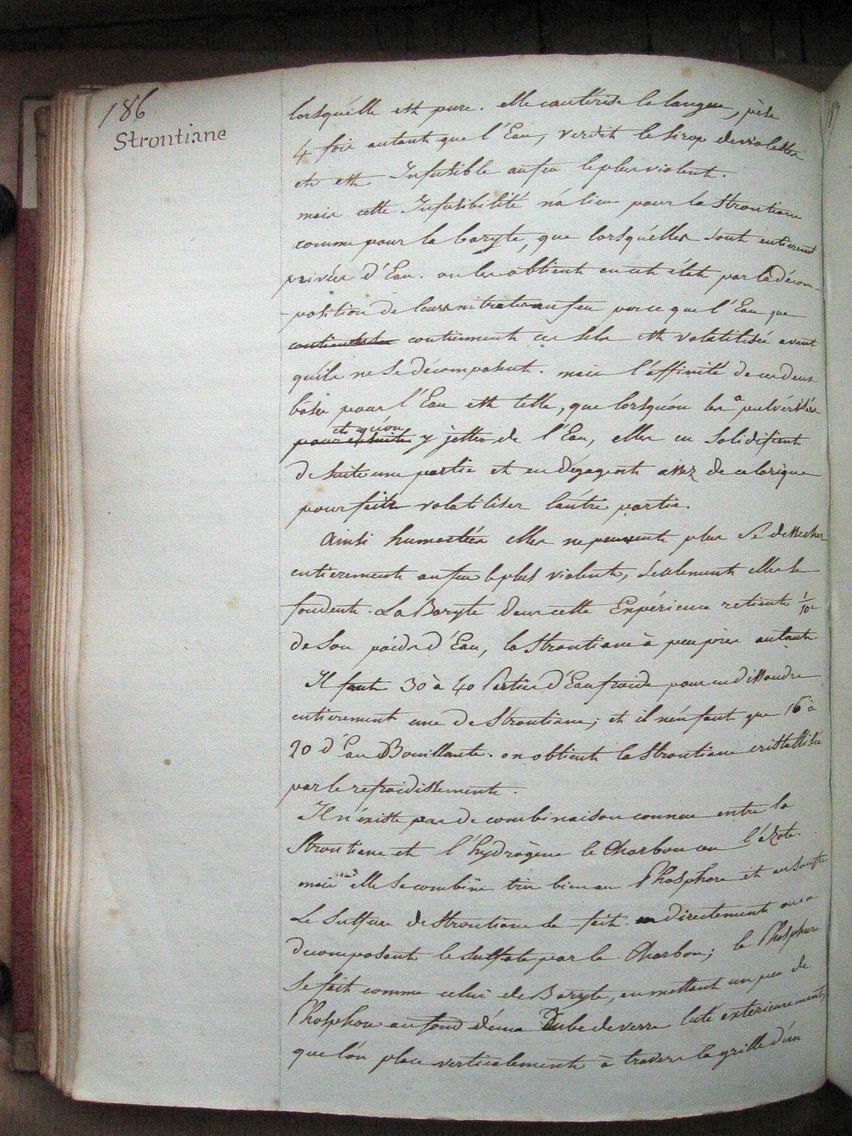 186
Strontiane
lorsqu'elle est pure. elle cautérise la langue, pèse
4 fois autant que l'Eau, verdit le sirop de violettes
et est Infusible au feu le plus violent.
mais cette Infusibilité n'a lieu pour la Strontiane
comme pour la baryte, que lorsqu'elles sont entierem^t
privées d'Eau. on les obtient en cet état par la décom-
-position de leurs nitrates au feu parce que l'Eau que
contiennent ces sels est volatilisée avant
qu'ils ne se décomposent. mais l'affinité de ces deux
bases pour l'Eau est telle, que lorsqu'on les a pulvérisées
et qu'on
pour ensuite y jetter de l'Eau, elles en solidifient
de suite une partie et en dégagent assez de calorique
pour faire volatiliser l'autre partie.
Ainsi humectées elles ne peuvent plus se dessecher
entierement au feu le plus violent, seulement elles se
fondent. La Baryte dans cette Expérience retient 1/10^e
de son poids d'Eau, la Strontiane à peu près autant.
Il faut 30 à 40 Parties d'Eau froide pour en dissoudre
entierement une de Strontiane; et il n'en faut que 16 à
20 d'Eau Bouillante. on obtient la Strontiane cristallisée
par le refroidissement.
Il n'existe pas de combinaison connue entre la
Strontiane et l'hydrogène le Charbon ou l'azote.
mais elle se combine très bien au Phosphore et au Soufre
Le Sulfure de Strontiane se fait directement ou en
décomposant le sulfate par le Charbon; le Phosphure
se fait comme celui de Baryte, en mettant un peu de
Phosphore au fond d'un Tube de verre luté exterieurement,
que l'on place verticalement à travers la grille d'un